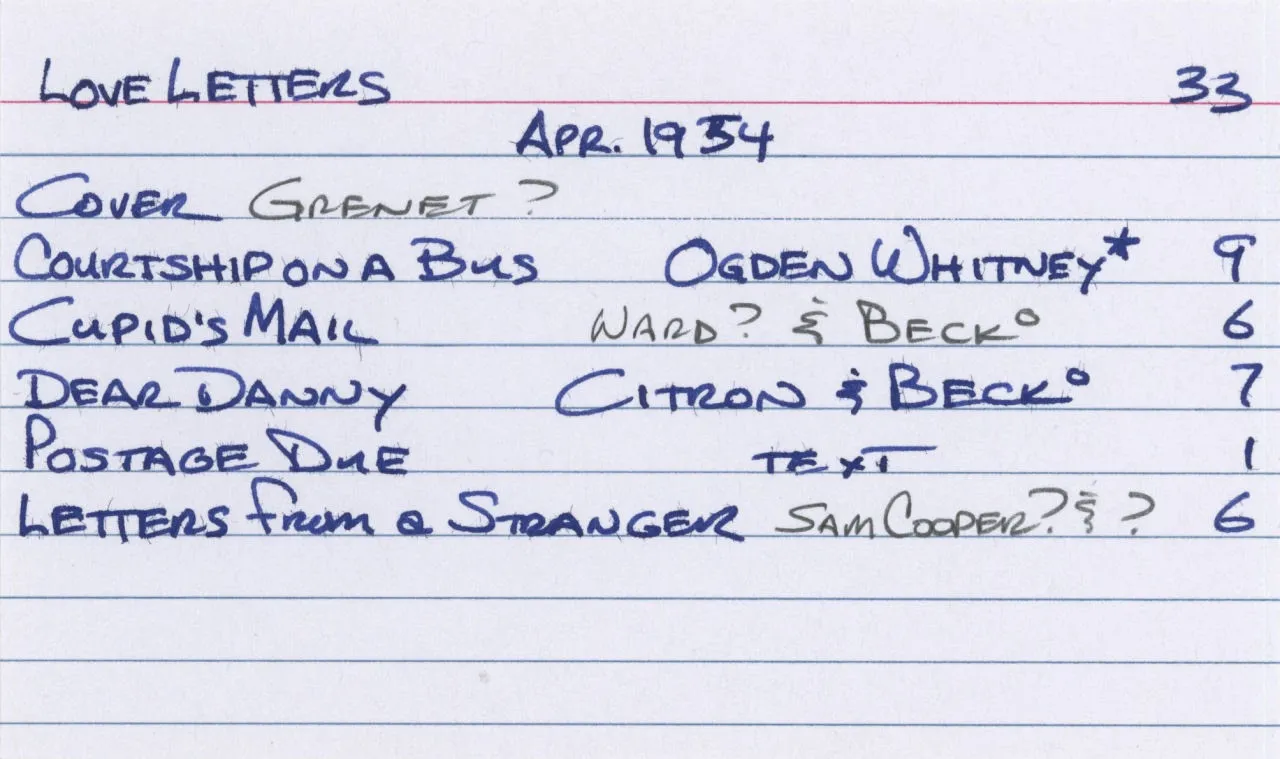 LOVE LETTERS 33
APR. 1954
COVER GRENET ?
COURTSHIP ON A BUS OGDEN WHITNEY* 9
CUPID'S MAIL WARD? & BECK° 6
DEAR DANNY CITRON & BECK° 7
POSTAGE DUE TEXT 1
LETTERS from a STRANGER SAM COOPER? & ? 6